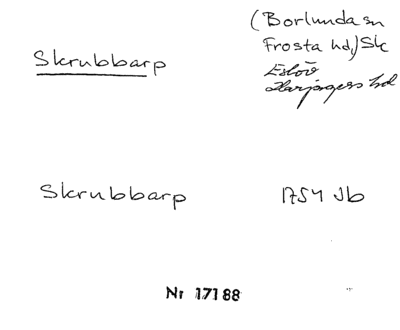 Skrubbarp
(Borlunda sn
Frosta hd,) Sk
Eslöv
Harjagers hd
Skrubbarp
1754 Jb
Nr 17188